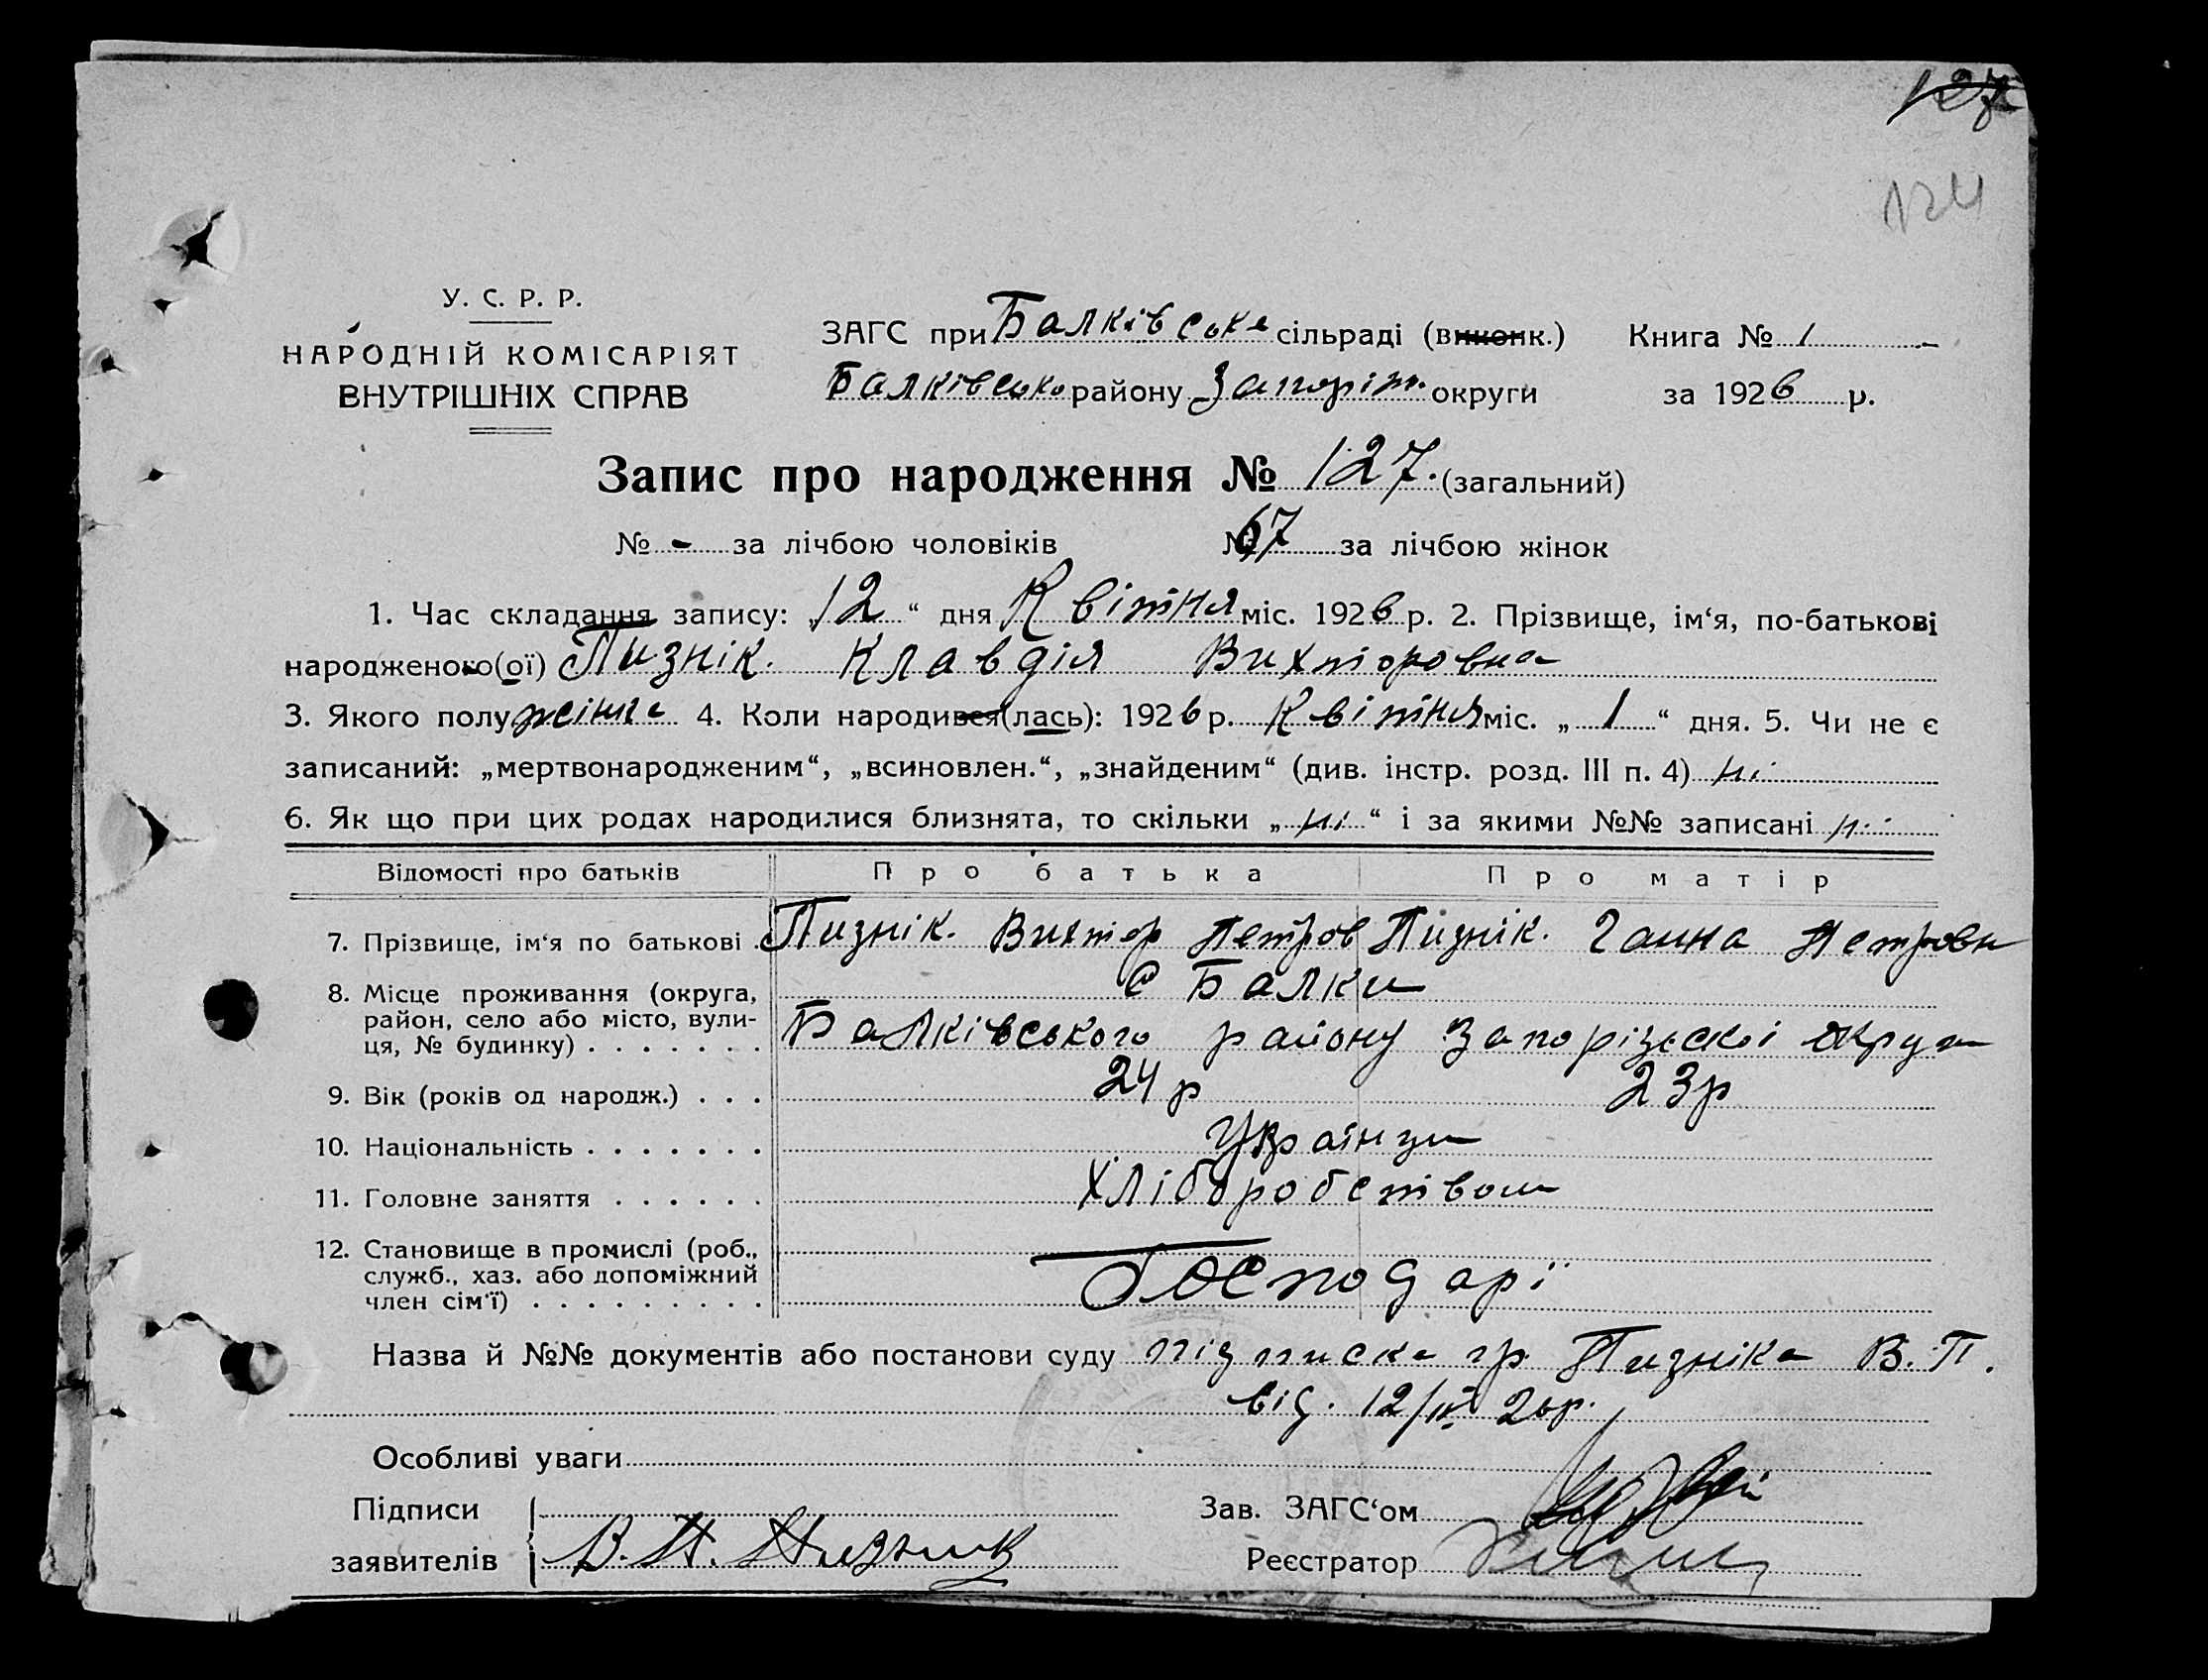 127
124
У. С. Р. Р.
НАРОДНІЙ КОМІСАРІЯТ
ВНУТРІШНІХ СПРАВ
ЗАГС при Балківське сільраді (виконк.) Книга № 1
Балківсько району Запоріж. округи за 1926 р.
Запис про народження № 127. (загальний)
№ - за лічбою чоловіків № 67 за лічбою жінок
1. Час складання запису: „12“ дня Квітня міс. 1926 р. 2. Прізвище, ім‘я, по-батькові
народженого(ої) Пизнік. Клавдія Вихторовна
3. Якого полу жіноче 4. Коли народився(лась): 1926 р. Квітня міс. „1“ дня. 5. Чи не є
записаний: „мертвонародженим“, „всиновлен.“, „знайденим“ (див. інстр. розд. III п. 4) ні
6. Як що при цих родах народилися близнята, то скільки „ні“ і за якими №№ записані ні
Відомості про батьків Про батька Про матір
7. Прізвище, ім‘я по батькові Пизнік. Вихтор Петров Пизнік. Ганна Петровн
8. Місце проживання (округа, с Балки
район, село або місто, вули-
ця, № будинку) . . . . . . . Балківського району Запорізескоі округи
9. Вік (років од народж.) . . . 24 р 23р
10. Національність . . . . . . . Українци
11. Головне заняття . . . . . . Хліборобством
12. Становище в промислі (роб.,
служб., хаз. або допоміжний Господарі
член сім‘ї) . . . . . . . . .
Назва й №№ документів або постанови суду підписка гр. Пизніка В. П.
від. 12/IV 26р.
Особливі уваги
Підписи Зав. ЗАГС‘ом
заявителів В. П. Пизник Реєстратор